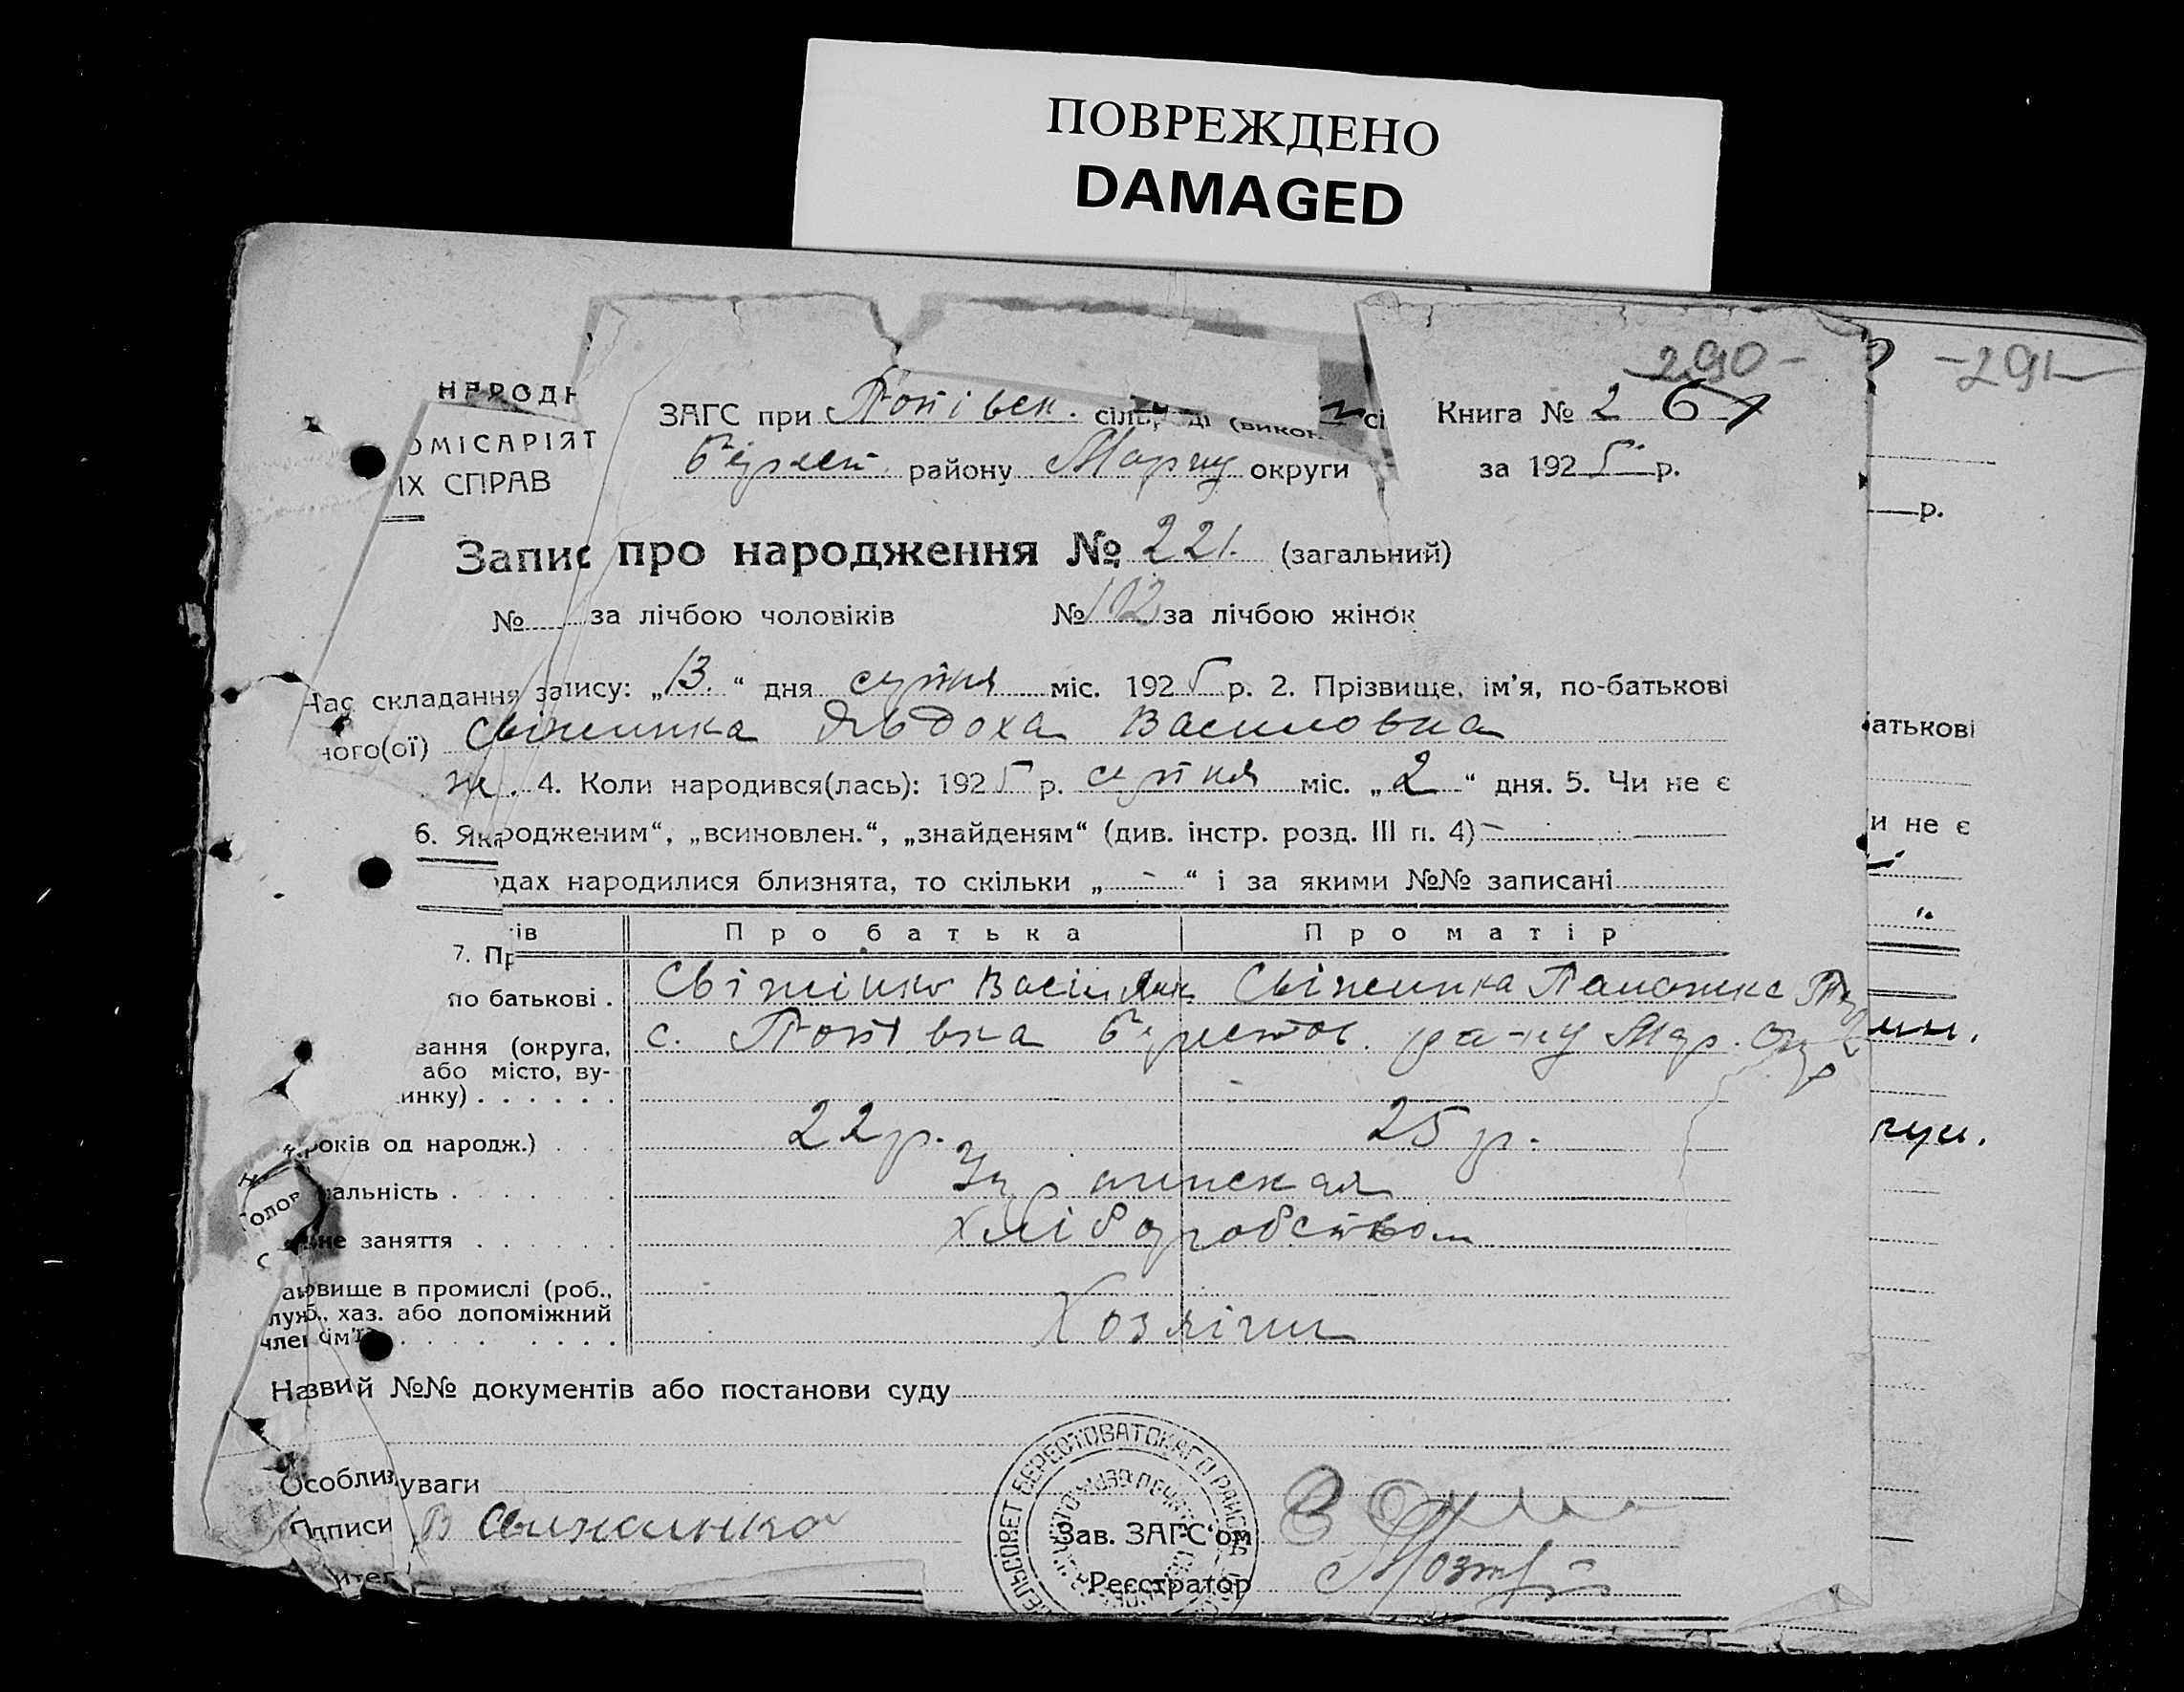 ПОВРЕЖДЕНО
DAMAGED
290- -291-
НАРОДН
ОМІСАРІЯТ
ІХ СПРАВ
ЗАГС при Попівск. сіль ді (викон сі Книга № 2
району Маріу округи за 1925 р.
Запис про народження № 221. (загальний)
№ за лічбою чоловіків № 102 за лічбою жінок
Час складання запису: „13.“ дня серпня міс. 1925 р. 2. Прізвище, ім’я, по-батькові
ного(ої) Свіжинка Явдоха Василовна
ж. 4. Коли народився(лась): 1925 р. серпня міс. „2“ дня. 5. Чи не є
6. Яка родженим“, „всиновлен.“, „знайденям“ (див. інстр. розд. III п. 4) –
дах народилися близнята, то скільки „ – “ і за якими №№ записані
ів Про батька Про матір
7. Пр
по батькові . Свіжінко Васіл Свіжинка
вання (округа, с. Попівка Берестов. району Мар. Окр
або місто, ву-
инку) . . . . . .
років од народж.) . . . 22 р. 25 р.
альність . . . . . .
не заняття . . . . . хліборобством
ановище в промислі (роб.,
луж., хаз. або допоміжний
член сім’ї) . . . . . . . Хозяіни
Назви й №№ документів або постанови суду
Особливі уваги
Підписи В Свижинко
Зав. ЗАГС‘ом
Реєстратор
СЕЛЬСОВЕТ БЕРЕСТОВАТСКАГО РАЙОН
р.
атькові
и не є
“